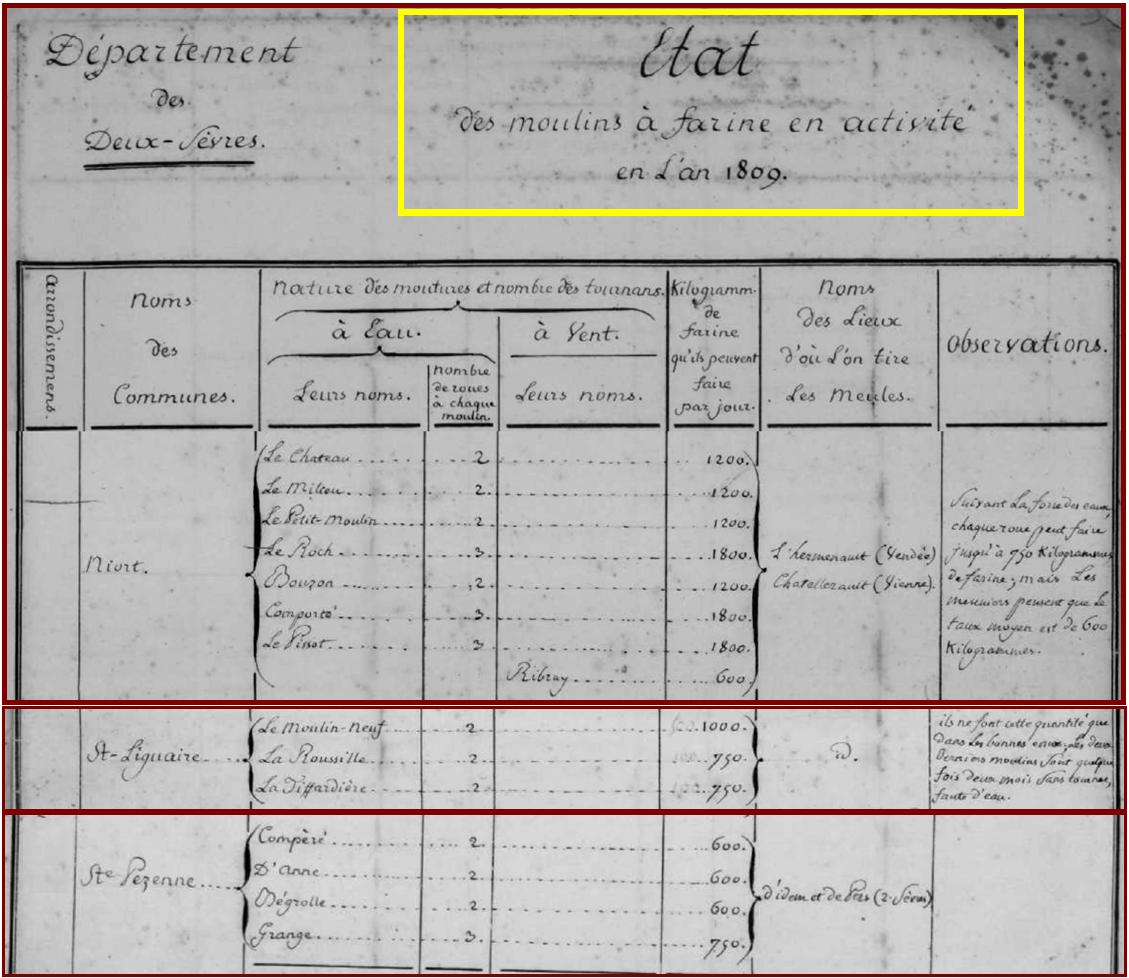 Département
des
Deux-Sèvres.
Etat
des moulins à farine en activité
en L'an 1809.
arrondissemens.
noms
des
Communes.
nature des moutures et nombre des tournans.
à Eau.
Leurs noms.
nombre
de roues
à chaque
moulin.
à Vent.
Leurs noms.
Kilogramm.
de
farine
qu'ils peuvent
faire
par jour.
noms
des Lieux
d'où L'on tire
Les Meules.
Observations.
Niort.
Le Chateau 2 1200.
Le Milieu 2. 1200.
Le Petit-Moulin 2 1200.
Le Roch 3. 1800.
Bouzon 2 1200.
Comporté 3. 1800.
Le Pissot 3 1800.
Ribray 600.
L'hermenault (Vendée)
Chatellerault (Vienne).
Suivant La force des eaux,
chaque roue peut faire
jusqu'à 750 Kilogrammes
de farine; mais Les
meuniers pensent que Le
taux moyen est de 600
Kilogrammes.
St-Liguaire
Le Moulin-neuf 2 1000.
La Roussille 2 750.
La Tiffardière 2 750.
id.
ils ne font cette quantité que
Dans Les bonnes eaux; Les deux
Derniers moulins sont quelque
fois deux mois Sans tourner,
faute d'eau.
Ste-Pezenne
Compèré 2 600.
D'anne 2 600.
Bégrolle 2 600.
Grange 3. 750.
d'idem et de Pers (2-Sèvres)